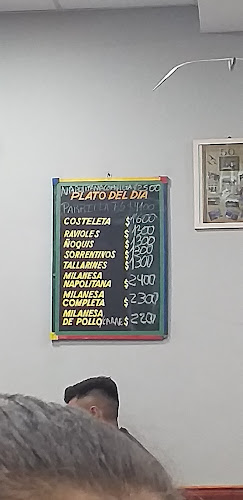 PLATO DEL DIA
COSTELETA $ 1600
RAVIOLES $ 1300
ÑOQUIS $ 1200
SORRENTINOS $ 1800
TALLARINES $ 1300
MILANESA
NAPOLITANA $ 2400
MILANESA
COMPLETA $ 2300
MILANESA
DE POLLO/CARNE $ 2200